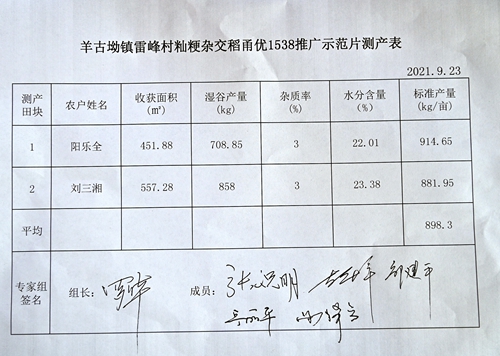 羊古坳镇雷峰村籼粳杂交稻甬优1538推广示范片测产表
2021.9.23
测产田块 农户姓名 收获面积(㎡) 湿谷产量(kg) 杂质率(%) 水分含量(%) 标准产量(kg/亩)
1 阳乐全 451.88 708.85 3 22.01 914.65
2 刘三湘 557.28 858 3 23.38 881.95
平均 898.3
专家组签名 组长: 成员: